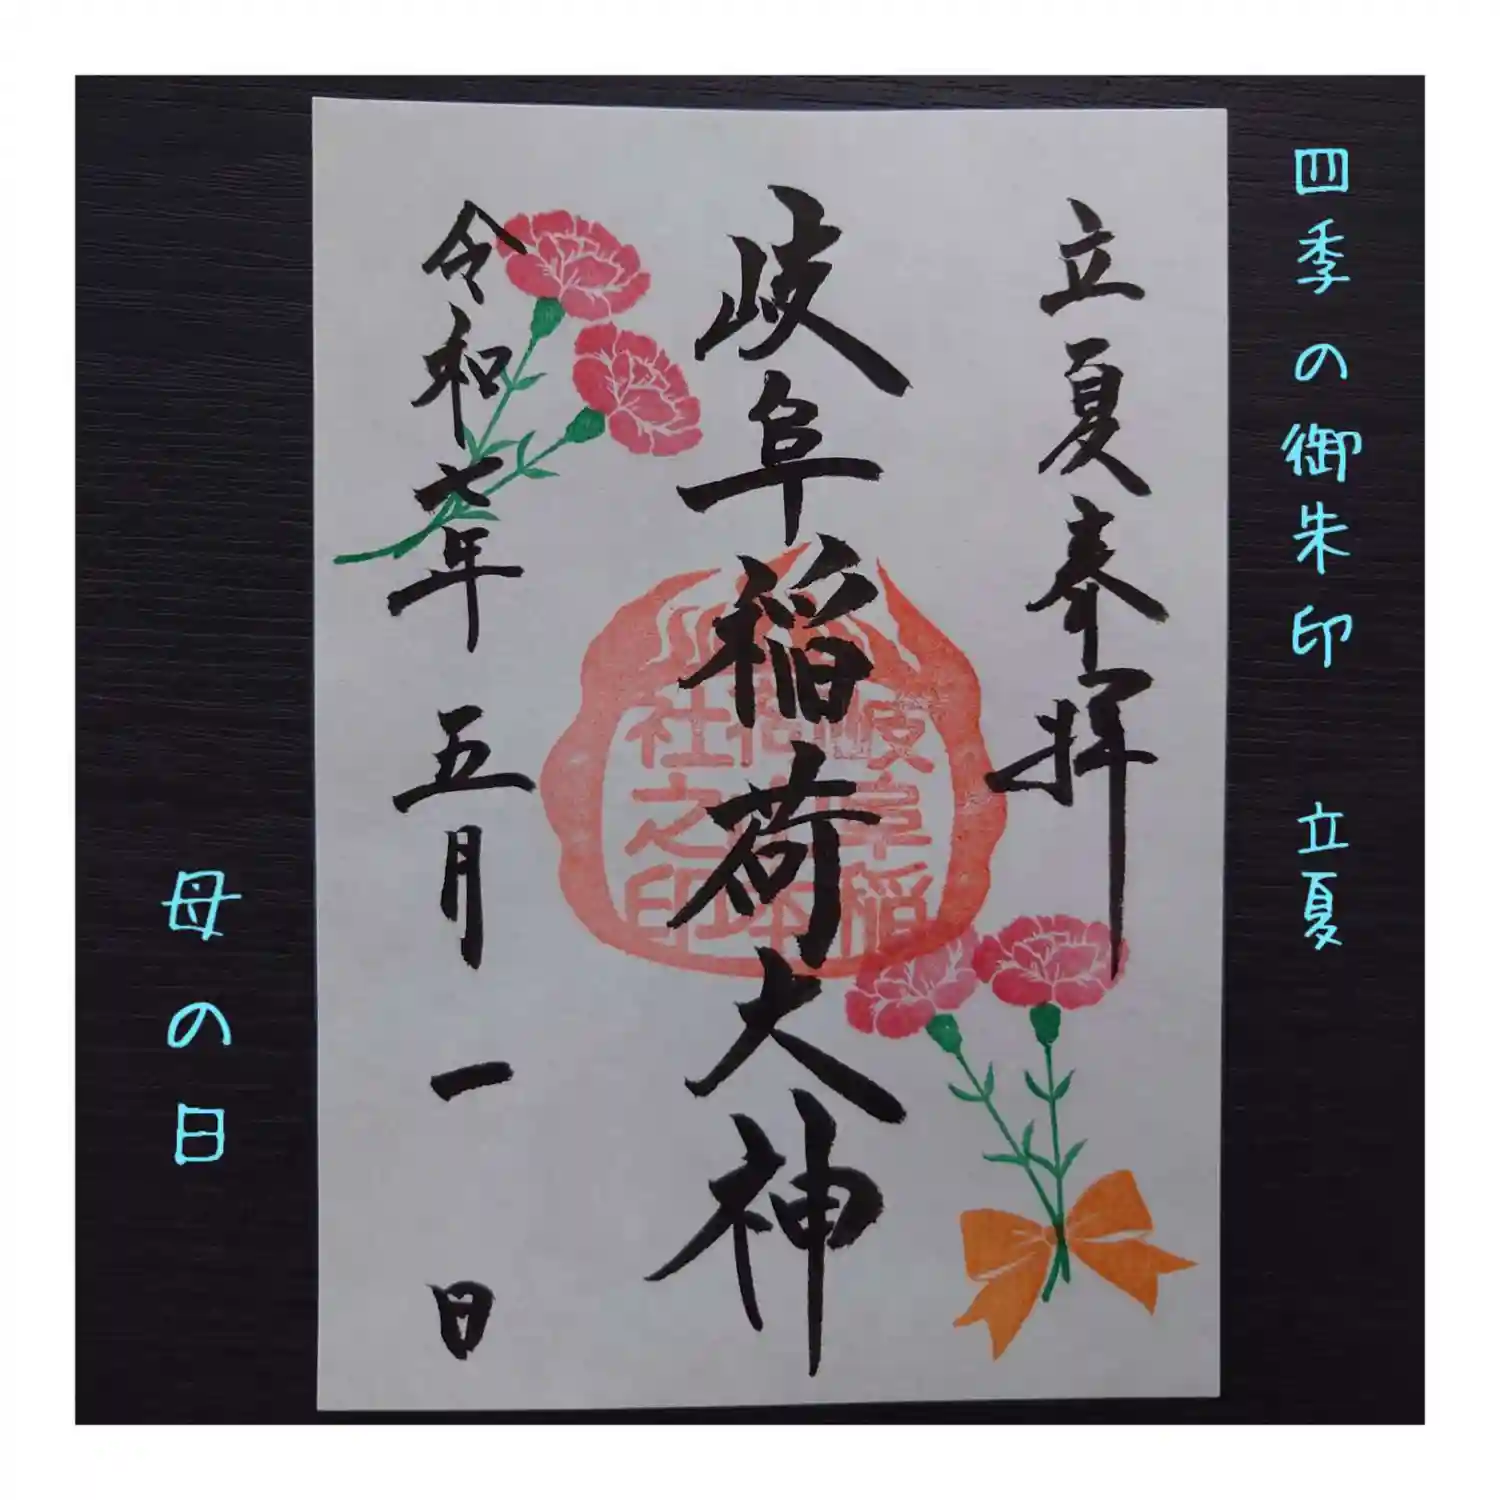 四季の御朱印 立夏
立夏奉拝
岐阜稲荷大神
岐阜稲
社之印
令和七年 五月一日
母の日